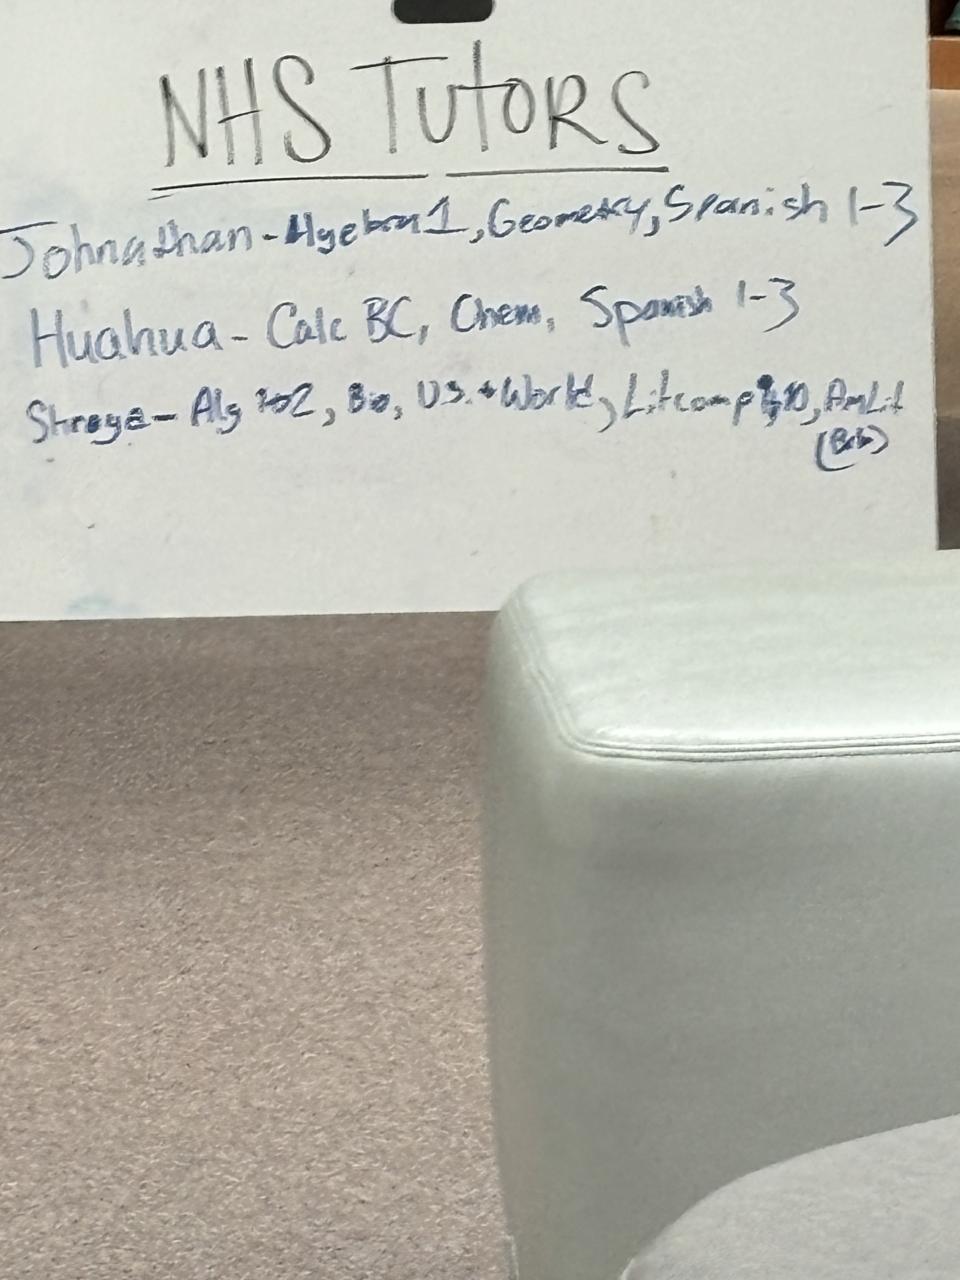 NHS TUTORS
Johnathan - Algebra 1, Geometry, Spanish 1-3
Huahua - Calc BC, Chem, Spanish 1-3
Shreya - Alg 1+2, Bio, US. + World, Litcomp 10, AmLit